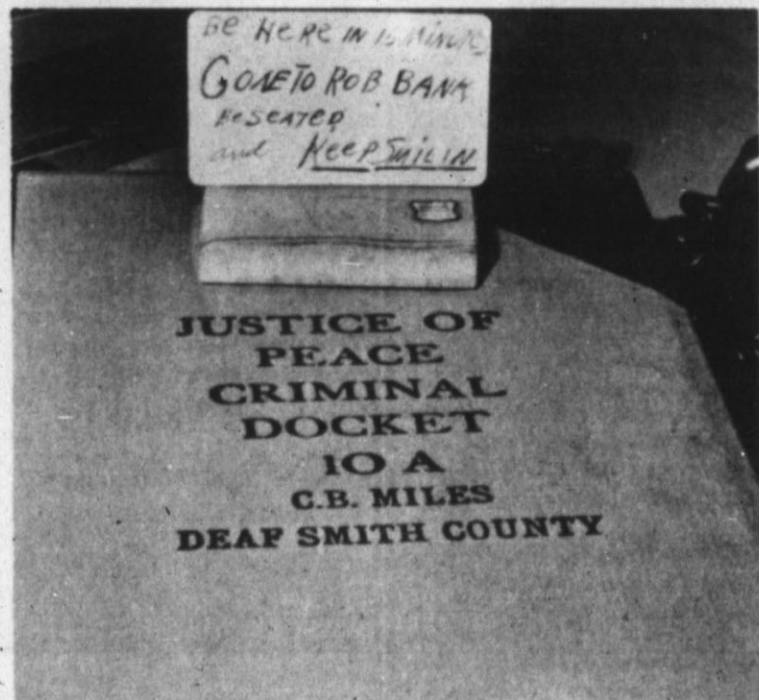 Be HeRe IN 15 Minute
GONE TO ROB BANK
Be SEATED
and KeeP SMILIN
JUSTICE OF
PEACE
CRIMINAL
DOCKET
10 A
C.B. MILES
DEAF SMITH COUNTY